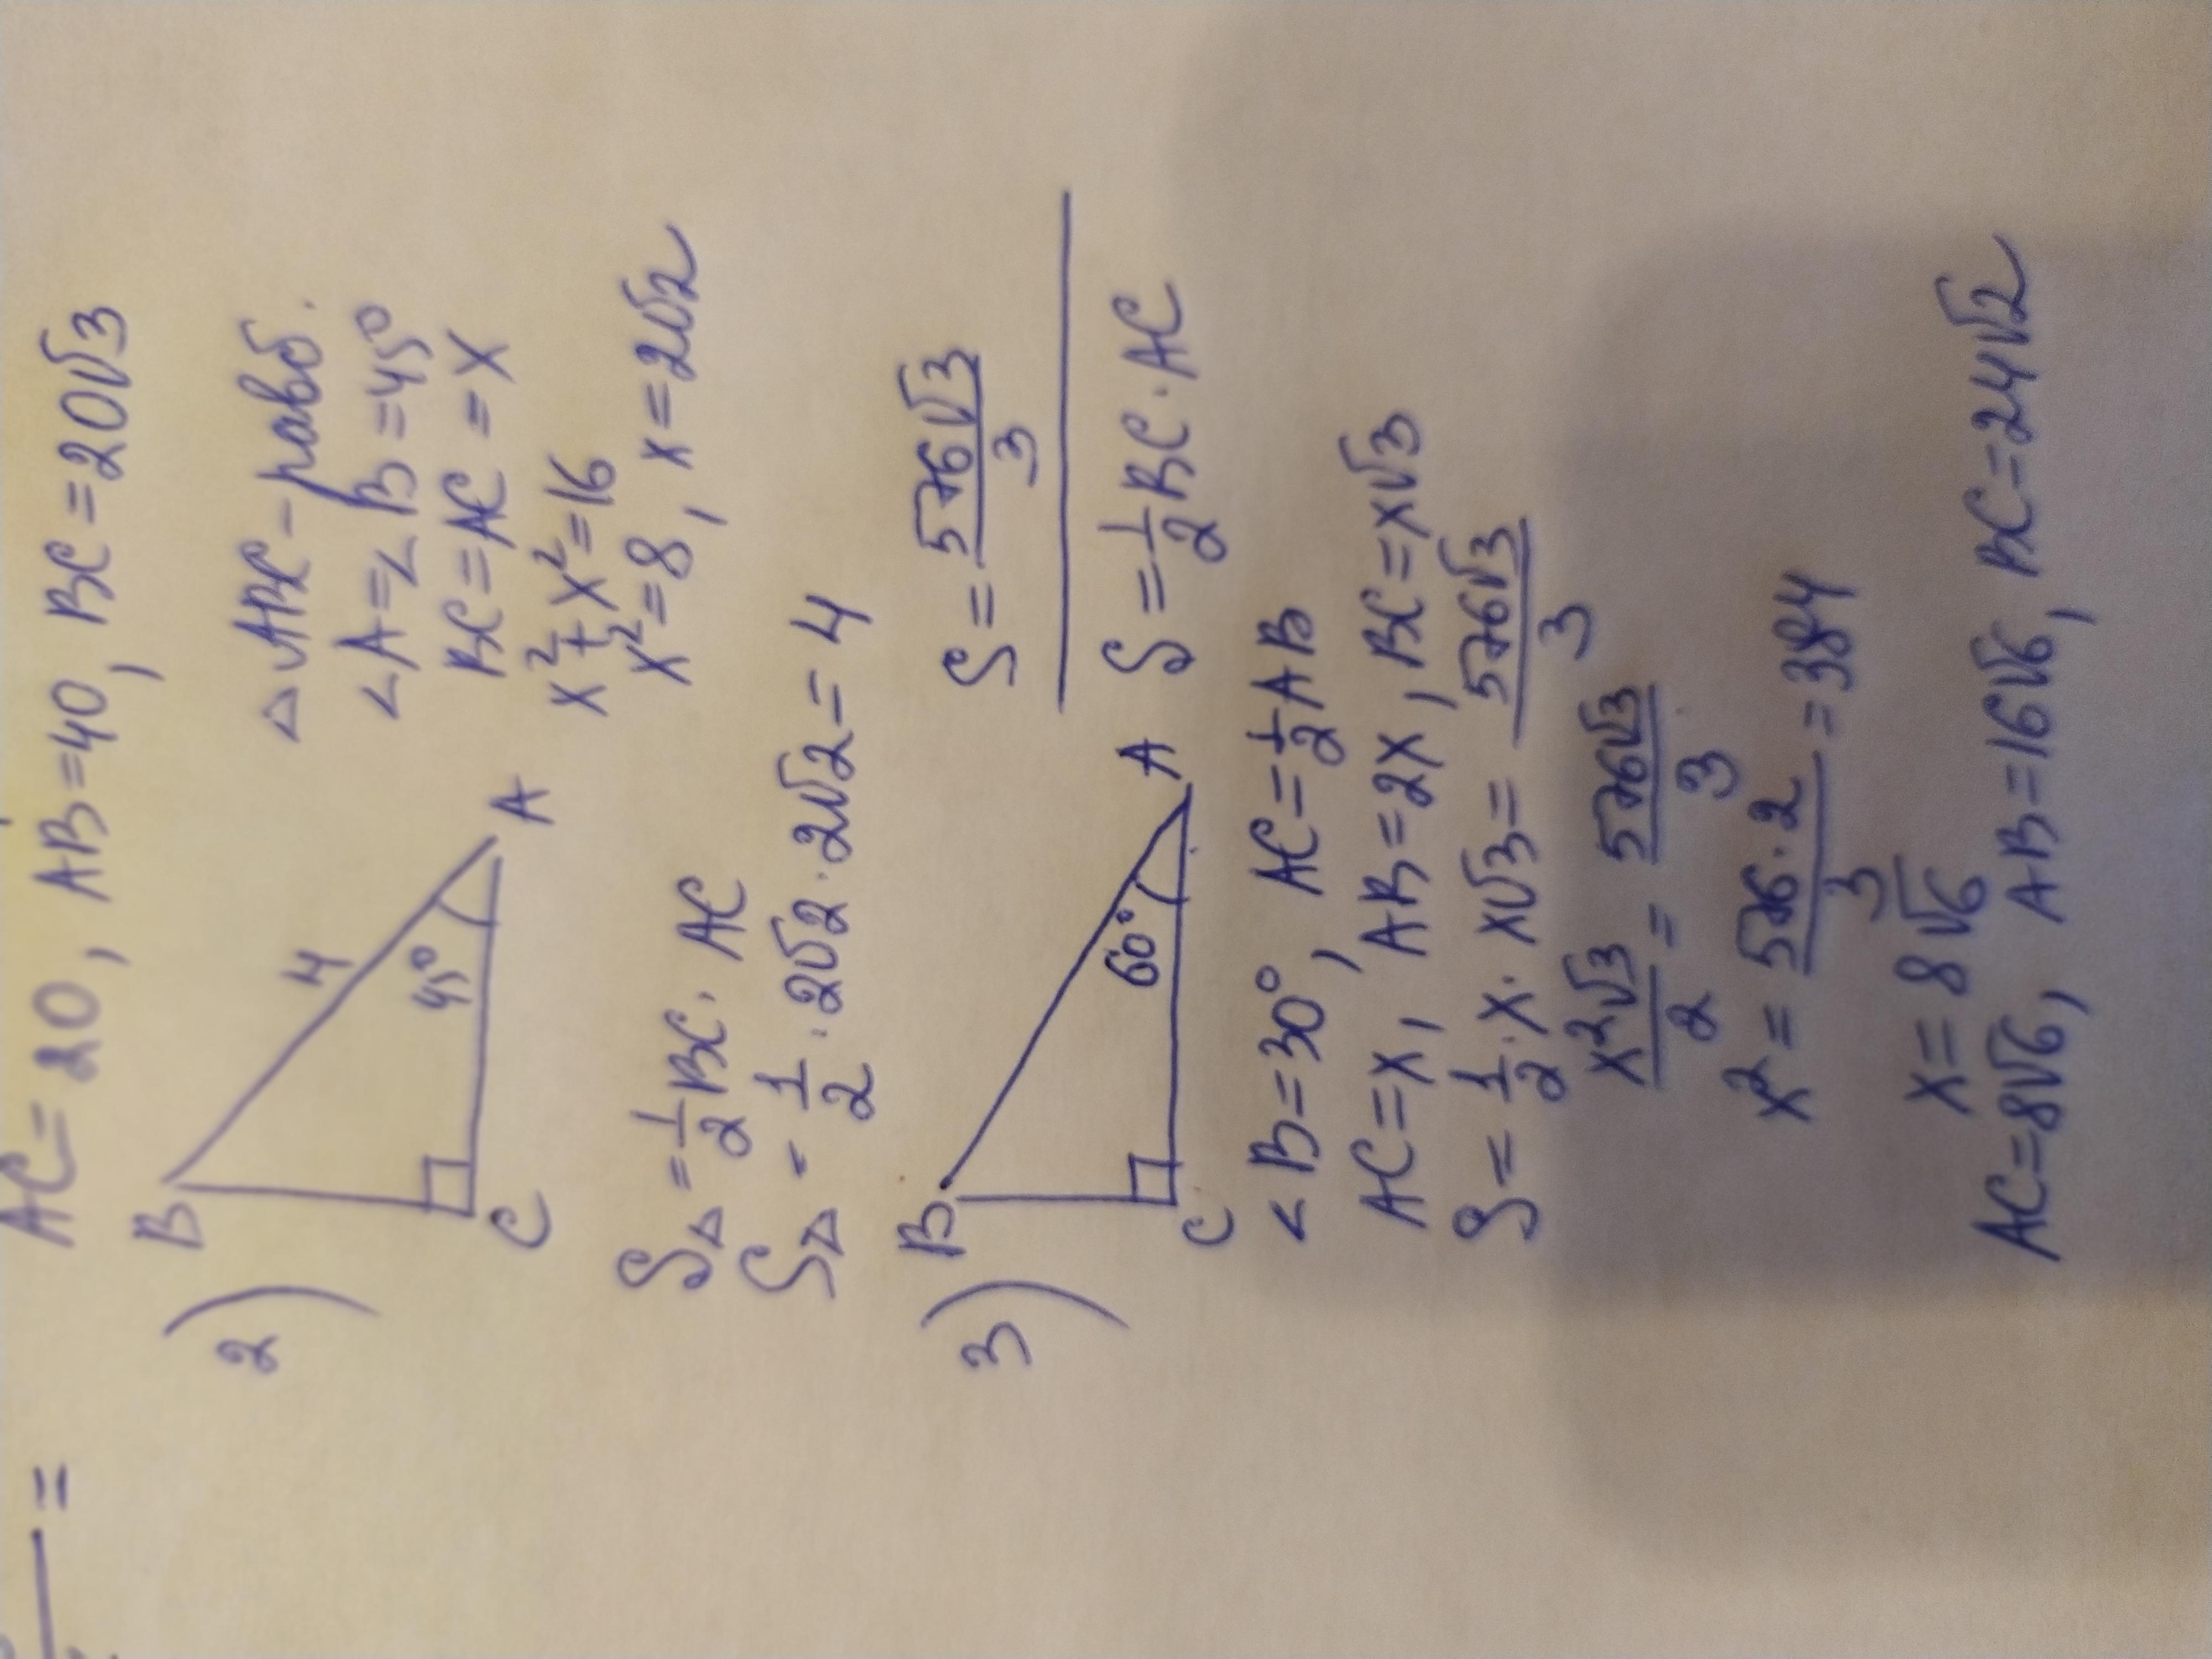 =
AC = 20, AB = 40, BC = 20√3
2)
B
4
45°
A
C
△ABC – равб.
∠A = ∠B = 45°
BC = AC = x
x² + x² = 16
x² = 8, x = 2√2
S△ = 1/2 BC · AC
S△ = 1/2 · 2√2 · 2√2 = 4
3)
B
60°
A
C
S = 576√3/3
S = 1/2 BC · AC
∠B = 30°, AC = 1/2 AB
AC = x, AB = 2x, BC = x√3
S = 1/2 · x · x√3 = 576√3/3
x²√3/2 = 576√3/3
x² = 576·2/3 = 384
x = 8√6
AC = 8√6, AB = 16√6, BC = 24√2